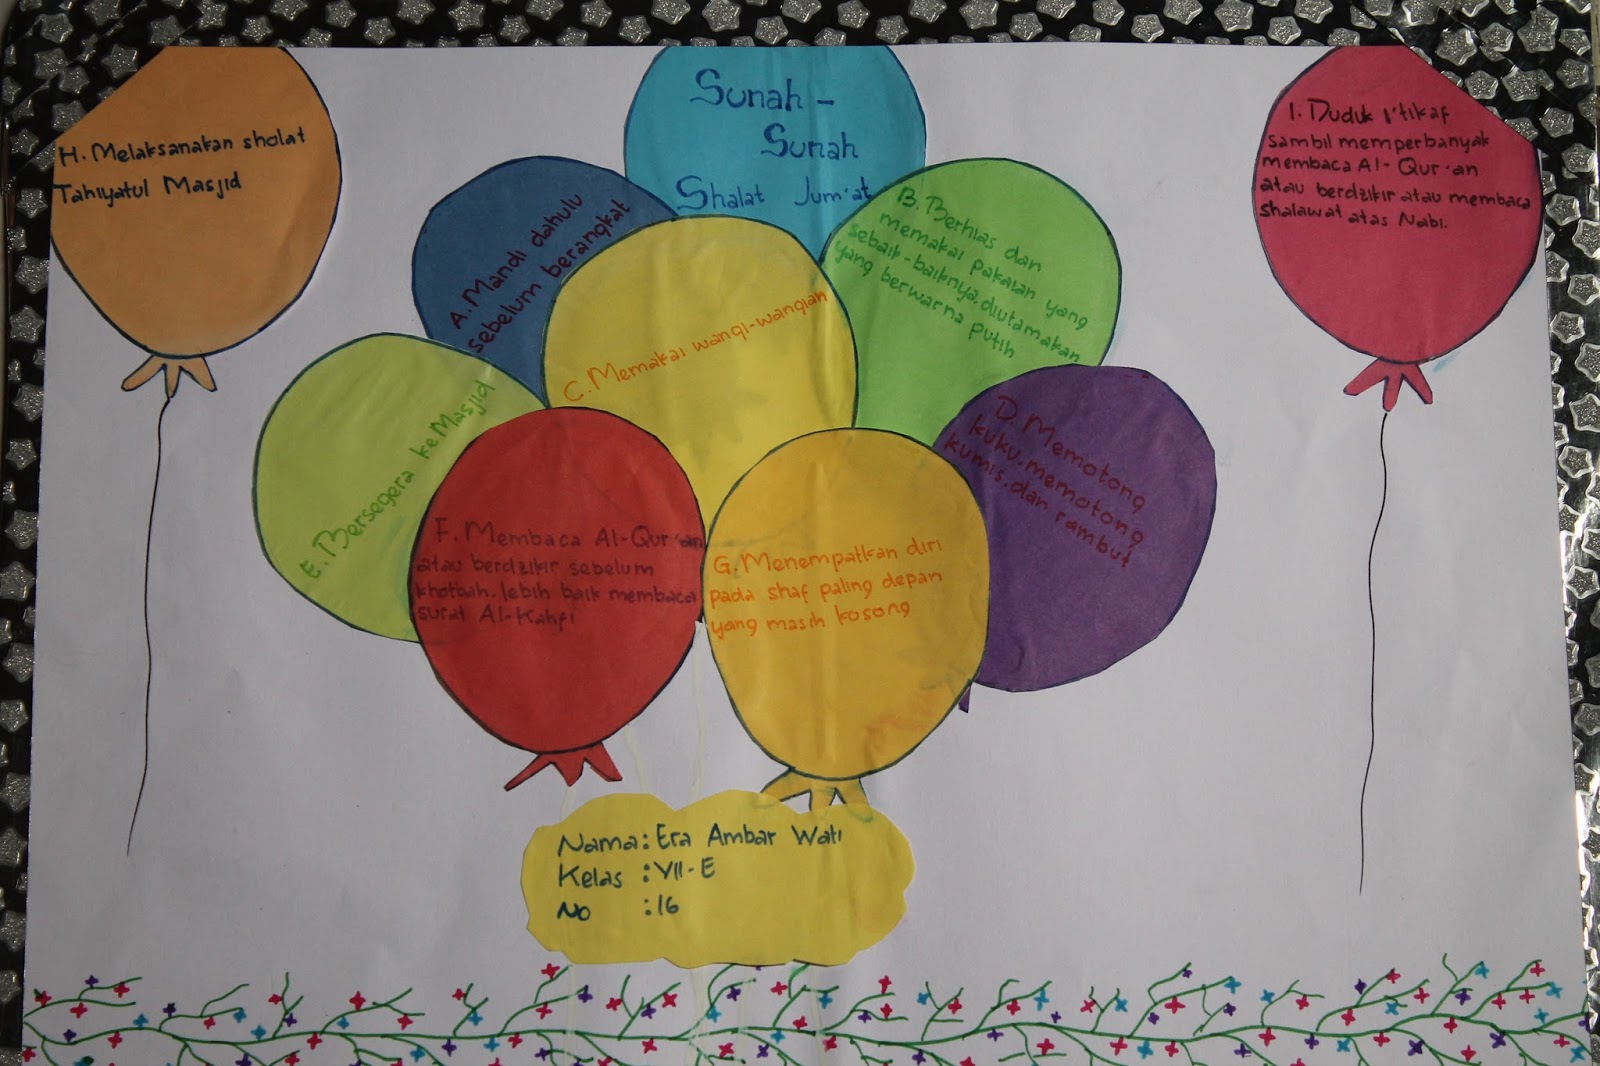 Sunah -
Sunah
Shalat Jum'at
A. Mandi dahulu
sebelum berangkat
B. Berhias dan
memakai pakaian yang
sebaik-baiknya, diutamakan
yang berwarna putih
C. Memakai wangi-wangian
D. Memotong
kuku, memotong
kumis, dan rambut
E. Bersegera ke Masjid
F. Membaca Al-Qur'an
atau berdzikir sebelum
khotbah, lebih baik membaca
surat Al-Kahfi
G. Menempatkan diri
pada shaf paling depan
yang masih kosong
H. Melaksanakan sholat
Tahiyatul Masjid
I. Duduk I'tikaf
sambil memperbanyak
membaca Al-Qur'an
atau berdzikir atau membaca
shalawat atas Nabi.
Nama : Era Ambar Wati
Kelas : VII-E
No : 16